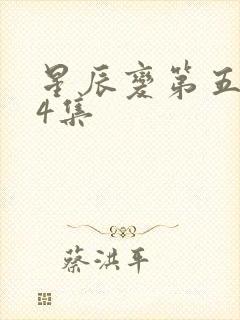 星辰变第五
4集
蔡洪平